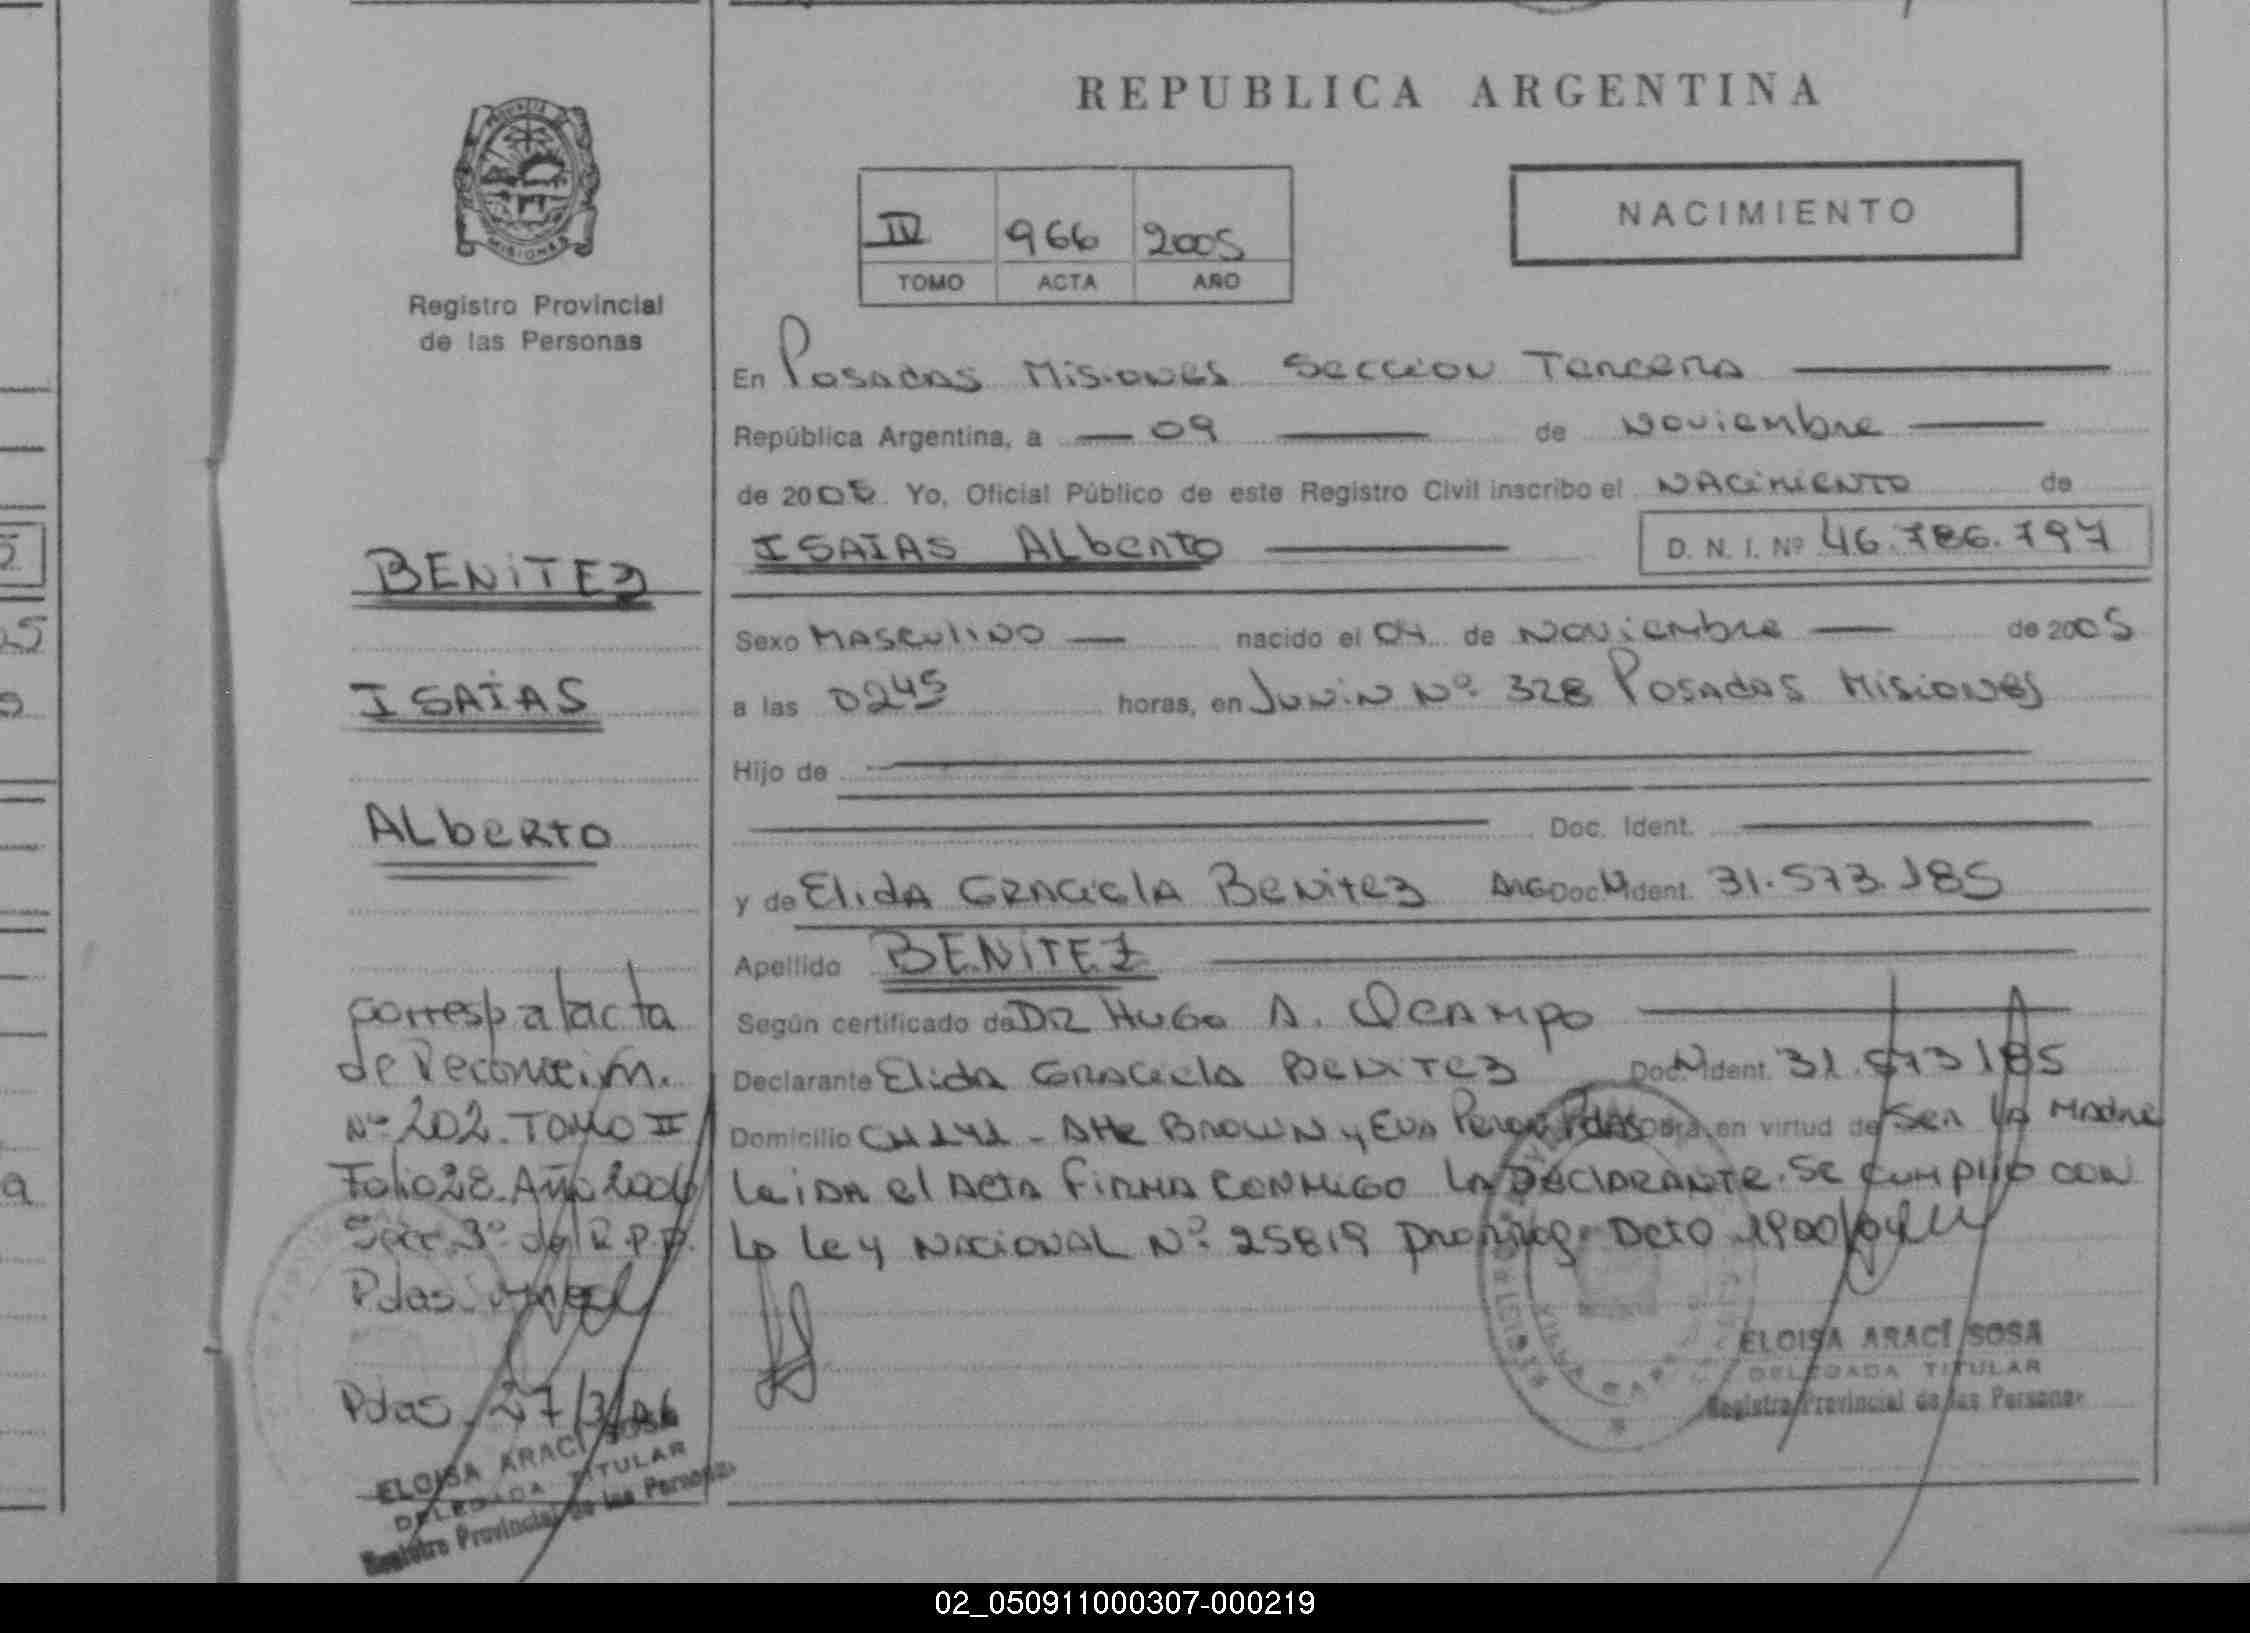 REPUBLICA ARGENTINA
PROVINCIA DE
MISIONES
Registro Provincial
de las Personas
IV 966 2005
TOMO ACTA AÑO
NACIMIENTO
En Posadas Misiones Seccion Tercera
República Argentina, a 09 de Noviembre
de 2005 Yo, Oficial Público de este Registro Civil inscribo el NACIMIENTO de
ISAIAS ALberto D. N. I. Nº 46.786.797
Sexo MASCULINO nacido el 04 de Noviembre de 2005
a las 0245 horas, en Junin Nº 328 Posadas Misiones
Hijo de
Doc. Ident.
y de Elida GRACiela Benitez ARG Doc. Ident. 31.573.185
Apellido BENITEZ
Según certificado de DR HUGO A. OCAMPO
Declarante Elida GRACiela BENITEZ Doc. Ident. 31.573185
Domicilio CH 242 - Alte BROWN y EVA Peron Pdas Obra en virtud de Ser la Madre
leida el Acta FIRMA CONMIGO LA DECLARANTE. Se cumplio con
la ley NACIONAL Nº 25819 Dcto 1900/04
ELOISA ARACI SOSA
DELEGADA TITULAR
Registro Provincial de las Personas
BENITEZ
ISAIAS
ALBERTO
Corresp al acta
de Reconocim.
Nº 202. Tomo II
Folio 28. Año 2006
Secc. 3º del R.P.P.
Pdas.
Pdas. 27/3/06
ELOISA ARACI SOSA
DELEGADA TITULAR
Registro Provincial de las Personas
02_050911000307-000219